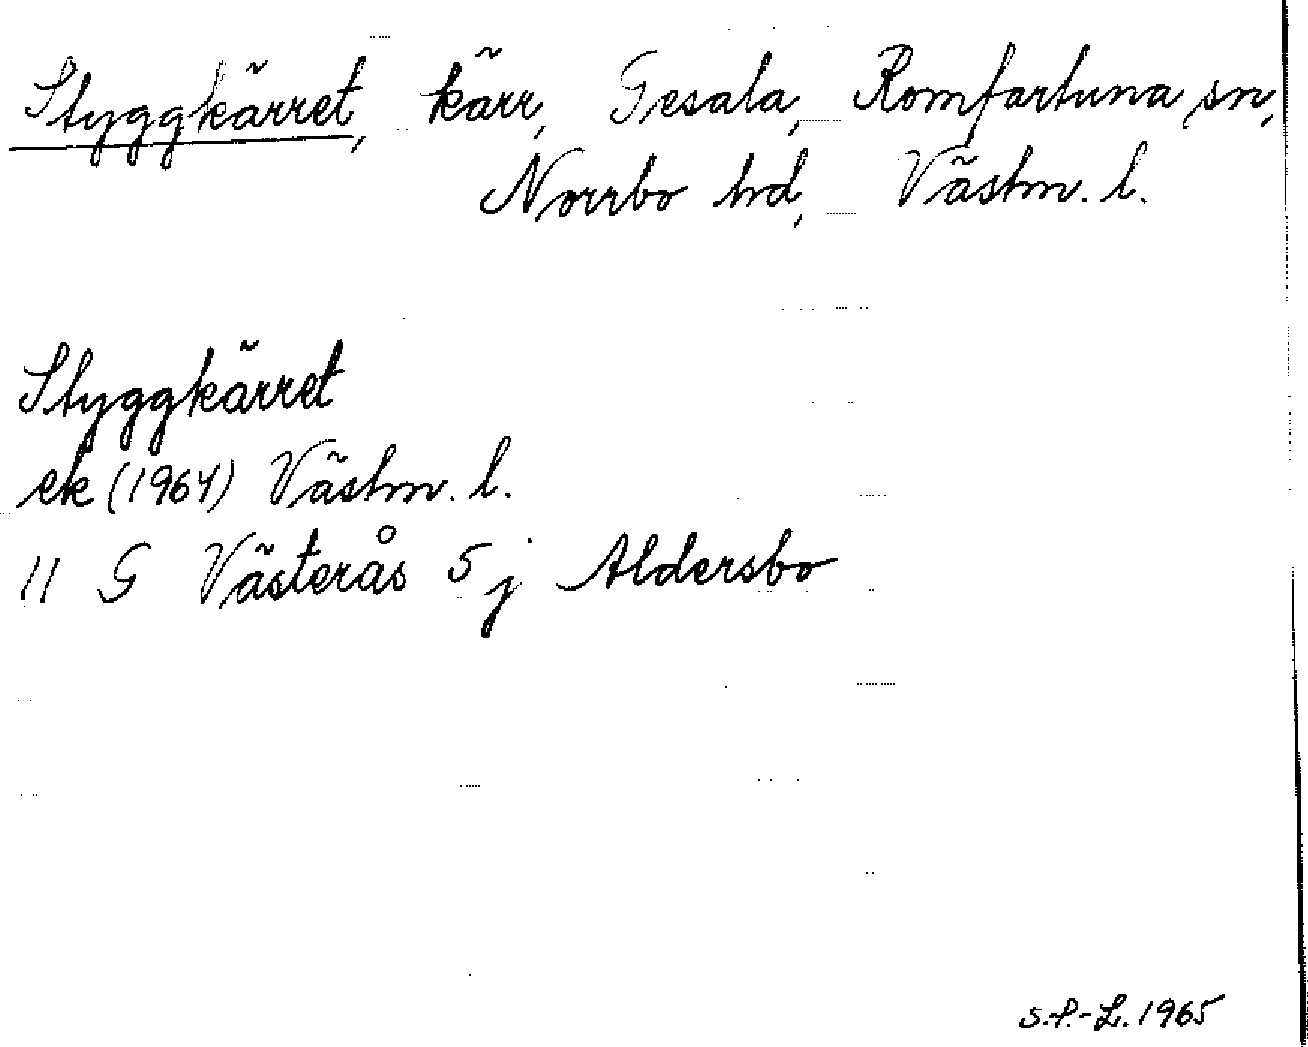 Styggkärret, kärr, Gesala, Romfartuna sn,
Norrbo hd, Västm. l.
Styggkärret
ek (1964) Västm. l.
11 G Västerås 5 j Aldersbo
S.-P.-L. 1965